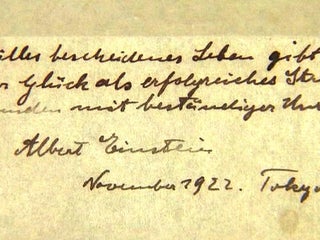 stilles bescheidenes Leben gibt
Glück als erfolgreiches
mit beständiger
Albert Einstein
November 1922. Tokyo